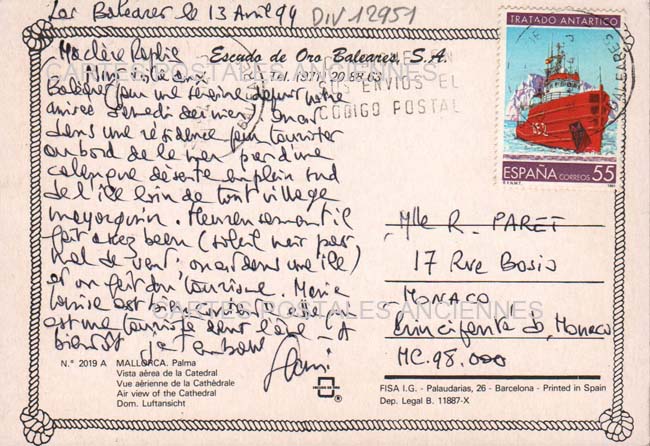 Les Baleares le 13 Avril 94 DIV 12951
Escudo de Oro Baleares, S.A.
Tel. (971) 20 68 63
EN
SUS ENVIOS EL
CODIGO POSTAL
BALEARES
TRATADO ANTARTICO
A-52
ESPAÑA CORREOS 55
CARTES POSTALES ANCIENNES
Ma chère
Nous aux
Baléares pour une semaine depuis notre
arrivée Samedi dernier. On est
dans une résidence pour touristes
au bord de la mer par d'une
calanque déserte en plein sud
de l'île loin de tout village
mayorquin. Heureusement il
fait assez beau (soleil mais pas
mal de vent, on est dans une île)
et on fait du tourisme. Marie
Louise est bien contente elle
est une touriste dans l'âme. A
bientôt
Mlle R. PARET
17 Rue Bosio
MONACO
Principauté de Monaco
MC. 98.000
CARTES POSTALES ANCIENNES
N.º 2019 A MALLORCA. Palma
Vista aérea de la Catedral
Vue aérienne de la Cathédrale
Air view of the Cathedral
Dom. Luftansicht
ESCUDO DE ORO
®
FISA I.G. - Palaudarias, 26 - Barcelona - Printed in Spain
Dep. Legal B. 11887-X